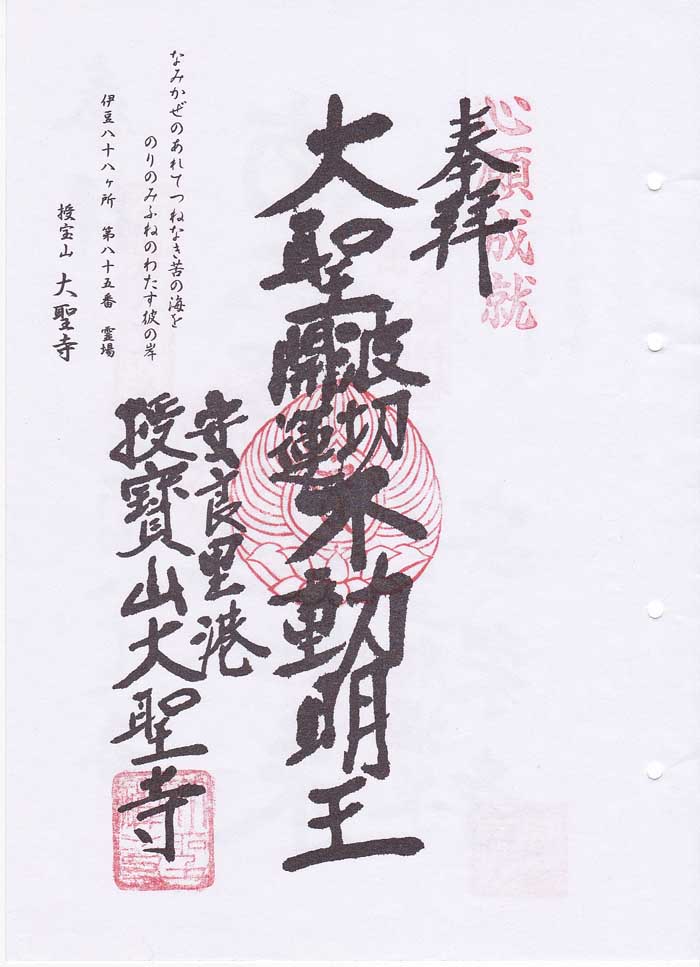 心願成就
奉拝
大聖波切開運不動明王
安良里港
授寶山大聖寺
なみかぜのあれてつねなき苦の海を
のりのみふねのわたす彼の岸
伊豆八十八ヶ所 第八十五番 霊場
授宝山 大聖寺